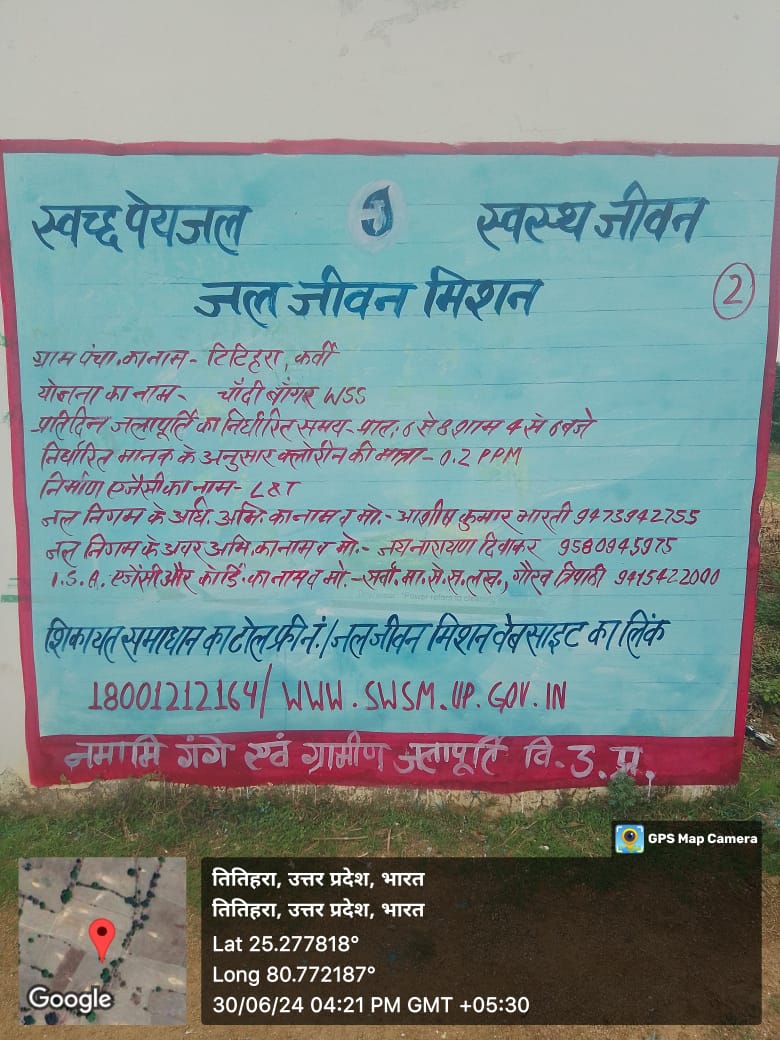 स्वच्छ पेयजल स्वस्थ जीवन
जल जीवन मिशन
2
ग्राम पंचा. का नाम - टिटिहरा, कर्वी
योजना का नाम - चाँदी बाँगर WSS
प्रतिदिन जलापूर्ति का निर्धारित समय - प्रात: 6 से 8 शाम 4 से 6 बजे
निर्धारित मानक के अनुसार क्लोरीन की मात्रा - 0.2 PPM
निर्माण एजेंसी का नाम - L&T
जल निगम के अधि. अभि. का नाम व मो. - आशीष कुमार भारती 9473942755
जल निगम के अवर अभि. का नाम व मो. - जयनारायण दिवाकर 9580945975
I.S.A. एजेंसी और कोर्डि. का नाम व मो. - सर्वो. मा. से. स. लख., गौरव त्रिपाठी 9415422000
शिकायत समाधान का टोल फ्री नं. / जल जीवन मिशन वेबसाइट का लिंक
18001212164 / WWW.SWSM.UP.GOV.IN
नमामि गंगे एवं ग्रामीण जलापूर्ति वि. उ. प्र.
GPS Map Camera
तितिहरा, उत्तर प्रदेश, भारत
तितिहरा, उत्तर प्रदेश, भारत
Lat 25.277818°
Long 80.772187°
30/06/24 04:21 PM GMT +05:30
Google